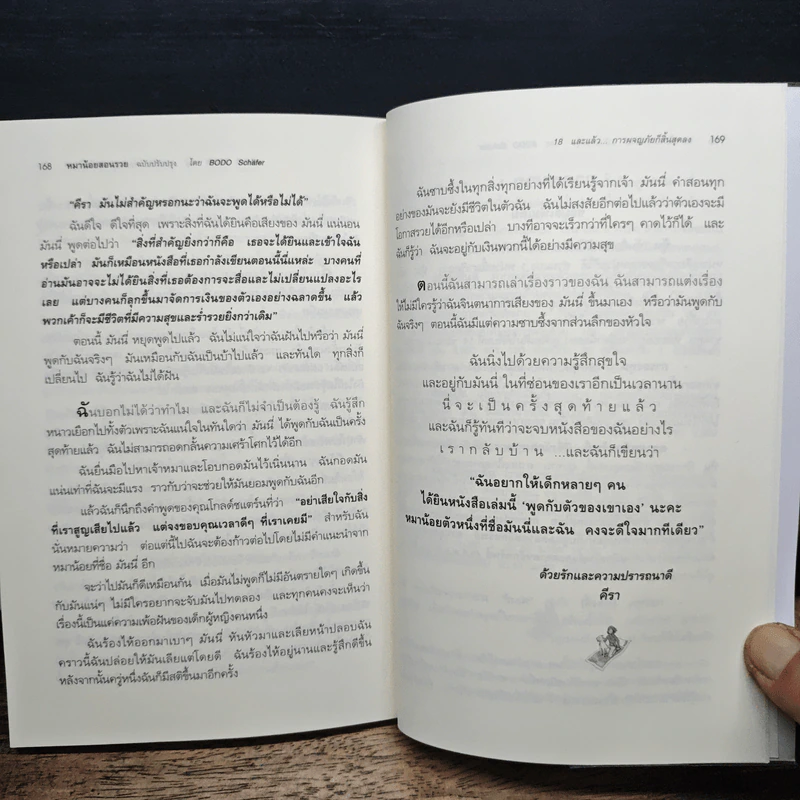 168 หมาน้อยสอนรวย ฉบับปรับปรุง โดย BODO Schäfer
"คีรา มันไม่สำคัญหรอกนะว่าฉันจะพูดได้หรือไม่ได้"
ฉันดีใจ ดีใจที่สุด เพราะสิ่งที่ฉันได้ยินคือเสียงของ มันนี่ แน่นอน
มันนี่ พูดต่อไปว่า "สิ่งที่สำคัญยิ่งกว่าก็คือ เธอจะได้ยินและเข้าใจฉัน
หรือเปล่า มันก็เหมือนหนังสือที่เธอกำลังเขียนตอนนี้นี่แหละ บางคนที่
อ่านมันอาจจะไม่ได้ยินสิ่งที่เธอต้องการจะสื่อและไม่เปลี่ยนแปลงอะไร
เลย แต่บางคนก็ลุกขึ้นมาจัดการเงินของตัวเองอย่างฉลาดขึ้น แล้ว
พวกเค้าก็จะมีชีวิตที่มีความสุขและร่ำรวยยิ่งกว่าเดิม"
ตอนนี้ มันนี่ หยุดพูดไปแล้ว ฉันไม่แน่ใจว่าฉันฝันไปหรือว่า มันนี่
พูดกับฉันจริงๆ มันเหมือนกับฉันเป็นบ้าไปแล้ว และทันใด ทุกสิ่งก็
เปลี่ยนไป ฉันรู้ว่าฉันไม่ได้ฝัน
ฉันบอกไม่ได้ว่าทำไม และฉันก็ไม่จำเป็นต้องรู้ ฉันรู้สึก
หนาวเยือกไปทั้งตัวเพราะฉันแน่ใจในทันใดว่า มันนี่ ได้พูดกับฉันเป็นครั้ง
สุดท้ายแล้ว ฉันไม่สามารถอดกลั้นความเศร้าโศกไว้ได้อีก
ฉันยื่นมือไปหาเจ้าหมาและโอบกอดมันไว้เนิ่นนาน ฉันกอดมัน
แน่นเท่าที่ฉันจะมีแรง ราวกับว่าจะช่วยให้มันยอมพูดกับฉันอีก
แล้วฉันก็นึกถึงคำพูดของคุณโกลด์ชแตร์นที่ว่า "อย่าเสียใจกับสิ่ง
ที่เราสูญเสียไปแล้ว แต่จงขอบคุณเวลาดีๆ ที่เราเคยมี" สำหรับฉัน
นั่นหมายความว่า ต่อแต่นี้ไปฉันจะต้องก้าวต่อไปโดยไม่มีคำแนะนำจาก
หมาน้อยที่ชื่อ มันนี่ อีก
จะว่าไปมันก็ดีเหมือนกัน เมื่อมันไม่พูดก็ไม่มีอันตรายใดๆ เกิดขึ้น
กับมันแน่ๆ ไม่มีใครอยากจะจับมันไปทดลอง และทุกคนคงจะเห็นว่า
เรื่องนี้เป็นแต่ความเพ้อฝันของเด็กผู้หญิงคนหนึ่ง
ฉันร้องไห้ออกมาเบาๆ มันนี่ หันหัวมาและเลียหน้าปลอบฉัน
คราวนี้ฉันปล่อยให้มันเลียแต่โดยดี ฉันร้องไห้อยู่นานและรู้สึกดีขึ้น
หลังจากนั้นครู่หนึ่งฉันก็มีสติขึ้นมาอีกครั้ง
18 และแล้ว... การผจญภัยก็สิ้นสุดลง 169
ฉันซาบซึ้งในทุกสิ่งทุกอย่างที่ได้เรียนรู้จากเจ้า มันนี่ คำสอนทุก
อย่างของมันจะยังมีชีวิตในตัวฉัน ฉันไม่สงสัยอีกต่อไปแล้วว่าตัวเองจะมี
โอกาสรวยได้อีกหรือเปล่า บางทีอาจจะเร็วกว่าที่ใครๆ คาดไว้ก็ได้ และ
ฉันก็รู้ว่า ฉันจะอยู่กับเงินพวกนี้ได้อย่างมีความสุข
ตอนนี้ฉันสามารถเล่าเรื่องราวของฉัน ฉันสามารถแต่งเรื่อง
ให้ไม่มีใครรู้ว่าฉันจินตนาการเสียงของ มันนี่ ขึ้นมาเอง หรือว่ามันพูดกับ
ฉันจริงๆ ตอนนี้ฉันมีแต่ความซาบซึ้งจากส่วนลึกของหัวใจ
ฉันนิ่งไปด้วยความรู้สึกสุขใจ
และอยู่กับมันนี่ ในที่ซ่อนของเราอีกเป็นเวลานาน
นี่จะเป็นครั้งสุดท้ายแล้ว
และฉันก็รู้ทันทีว่าจะจบหนังสือของฉันอย่างไร
เรากลับบ้าน ...และฉันก็เขียนว่า
"ฉันอยากให้เด็กหลายๆ คน
ได้ยินหนังสือเล่มนี้ 'พูดกับตัวของเขาเอง' นะคะ
หมาน้อยตัวหนึ่งที่ชื่อมันนี่และฉัน คงจะดีใจมากทีเดียว"
ด้วยรักและความปรารถนาดี
คีรา